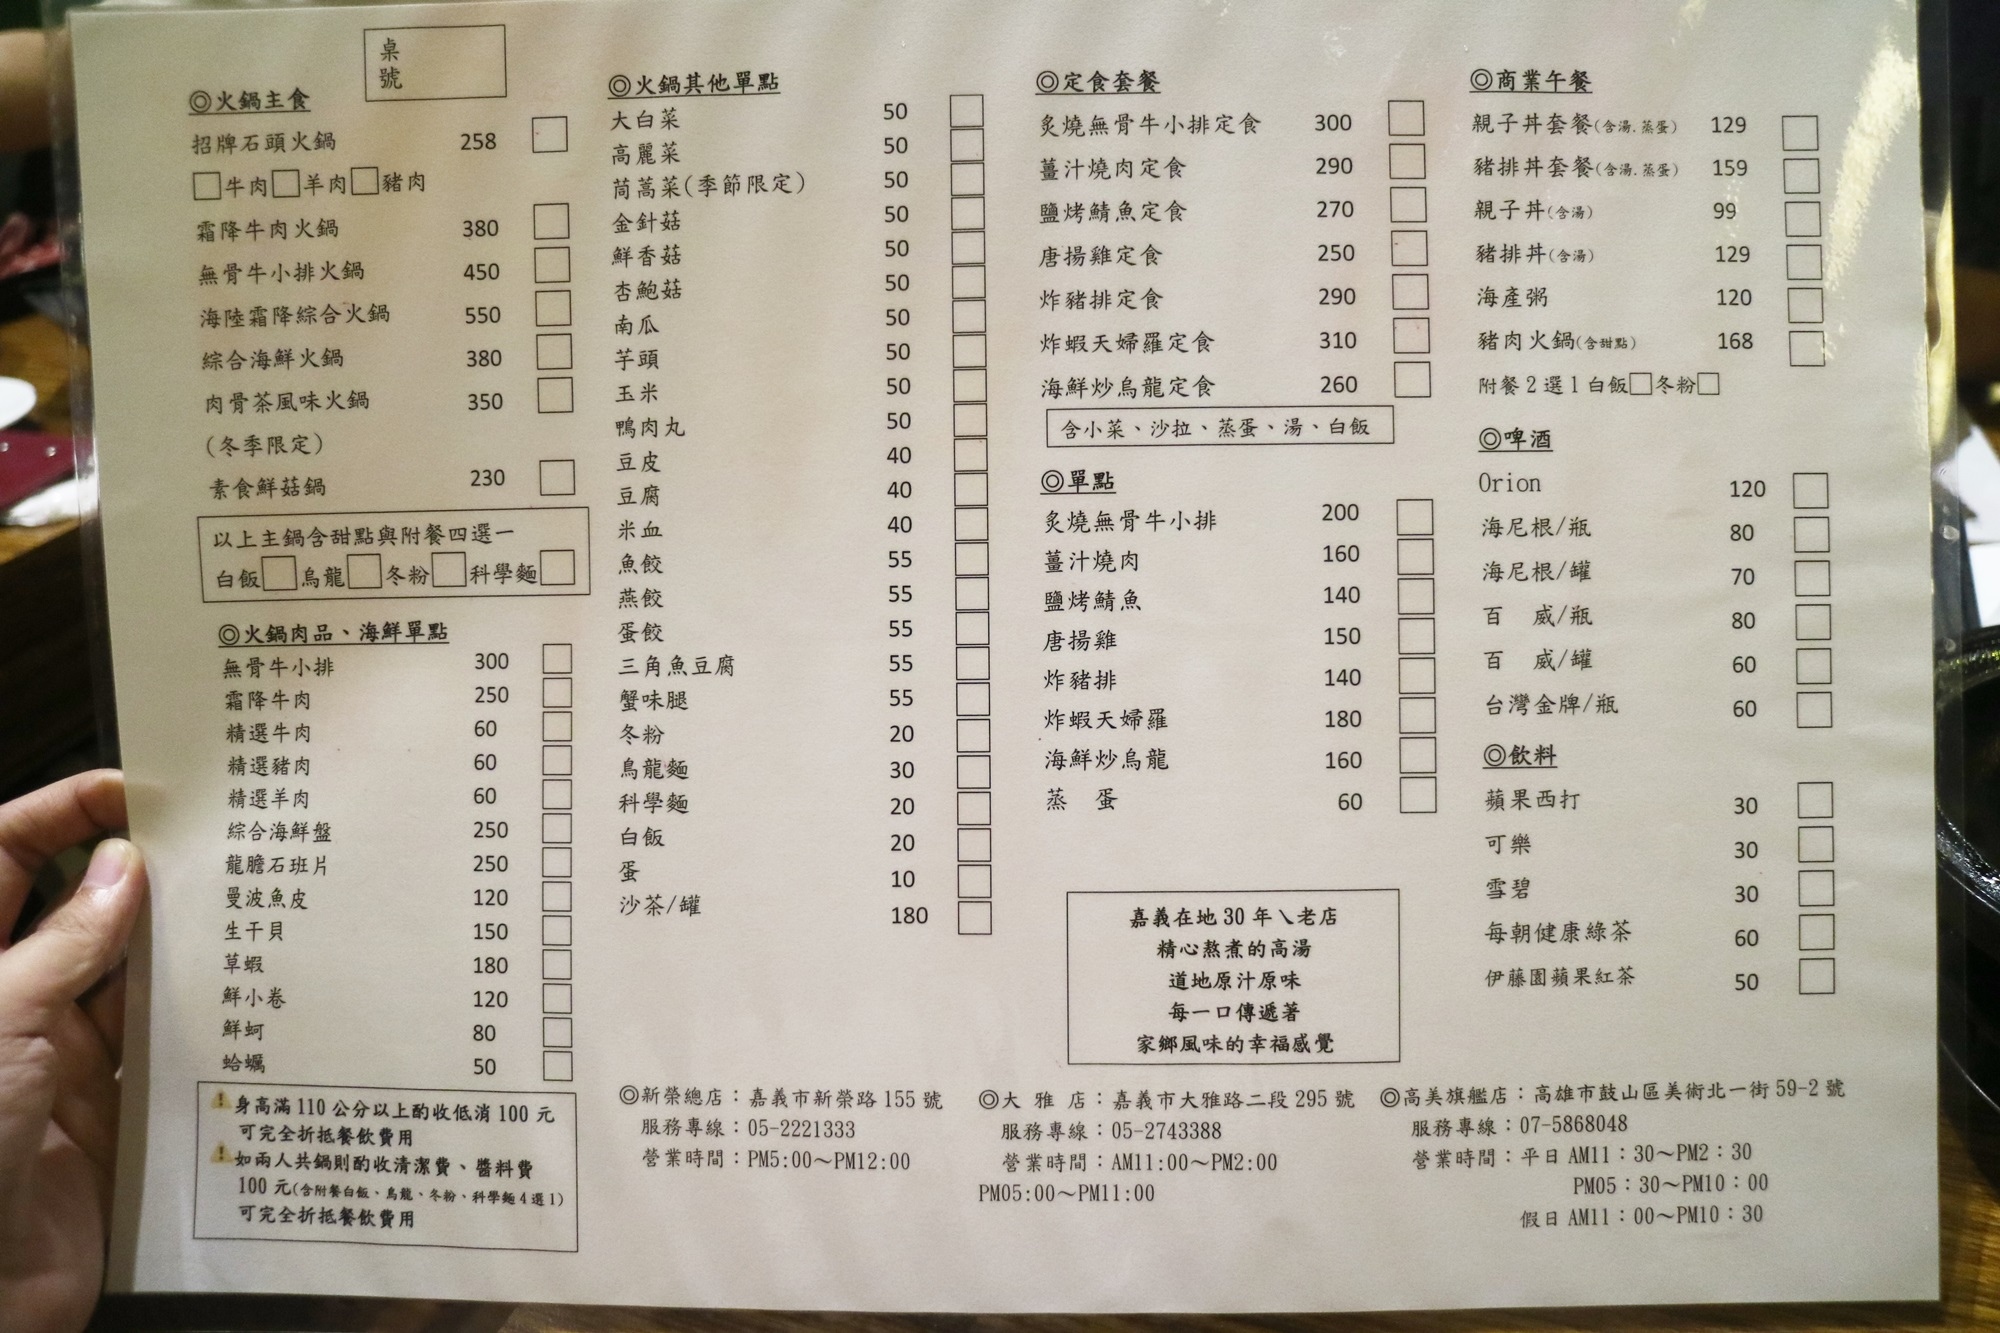 桌
號
◎火鍋主食
招牌石頭火鍋 258
牛肉 羊肉 豬肉
霜降牛肉火鍋 380
無骨牛小排火鍋 450
海陸霜降綜合火鍋 550
綜合海鮮火鍋 380
肉骨茶風味火鍋 350
(冬季限定)
素食鮮菇鍋 230
以上主鍋含甜點與附餐四選一
白飯 烏龍 冬粉 科學麵
◎火鍋肉品、海鮮單點
無骨牛小排 300
霜降牛肉 250
精選牛肉 60
精選豬肉 60
精選羊肉 60
綜合海鮮盤 250
龍膽石班片 250
曼波魚皮 120
生干貝 150
草蝦 180
鮮小卷 120
鮮蚵 80
蛤蠣 50
身高滿110公分以上酌收低消100元
可完全折抵餐飲費用
如兩人共鍋則酌收清潔費、醬料費
100元(含附餐白飯、烏龍、冬粉、科學麵4選1)
可完全折抵餐飲費用
◎火鍋其他單點
大白菜 50
高麗菜 50
茼蒿菜(季節限定) 50
金針菇 50
鮮香菇 50
杏鮑菇 50
南瓜 50
芋頭 50
玉米 50
鴨肉丸 50
豆皮 40
豆腐 40
米血 40
魚餃 55
燕餃 55
蛋餃 55
三角魚豆腐 55
蟹味腿 55
冬粉 20
烏龍麵 30
科學麵 20
白飯 20
蛋 10
沙茶/罐 180
◎定食套餐
炙燒無骨牛小排定食 300
薑汁燒肉定食 290
鹽烤鯖魚定食 270
唐揚雞定食 250
炸豬排定食 290
炸蝦天婦羅定食 310
海鮮炒烏龍定食 260
含小菜、沙拉、蒸蛋、湯、白飯
◎單點
炙燒無骨牛小排 200
薑汁燒肉 160
鹽烤鯖魚 140
唐揚雞 150
炸豬排 140
炸蝦天婦羅 180
海鮮炒烏龍 160
蒸 蛋 60
嘉義在地30年ㄟ老店
精心熬煮的高湯
道地原汁原味
每一口傳遞著
家鄉風味的幸福感覺
◎商業午餐
親子丼套餐(含湯.蒸蛋) 129
豬排丼套餐(含湯.蒸蛋) 159
親子丼(含湯) 99
豬排丼(含湯) 129
海產粥 120
豬肉火鍋(含甜點) 168
附餐2選1白飯 冬粉
◎啤酒
Orion 120
海尼根/瓶 80
海尼根/罐 70
百 威/瓶 80
百 威/罐 60
台灣金牌/瓶 60
◎飲料
蘋果西打 30
可樂 30
雪碧 30
每朝健康綠茶 60
伊藤園蘋果紅茶 50
◎新榮總店：嘉義市新榮路155號
服務專線：05-2221333
營業時間：PM5:00～PM12:00
◎大 雅 店：嘉義市大雅路二段295號
服務專線：05-2743388
營業時間：AM11:00～PM2:00
PM05:00～PM11:00
◎高美旗艦店：高雄市鼓山區美術北一街59-2號
服務專線：07-5868048
營業時間：平日AM11：30～PM2：30
PM05：30～PM10：00
假日AM11：00～PM10：30